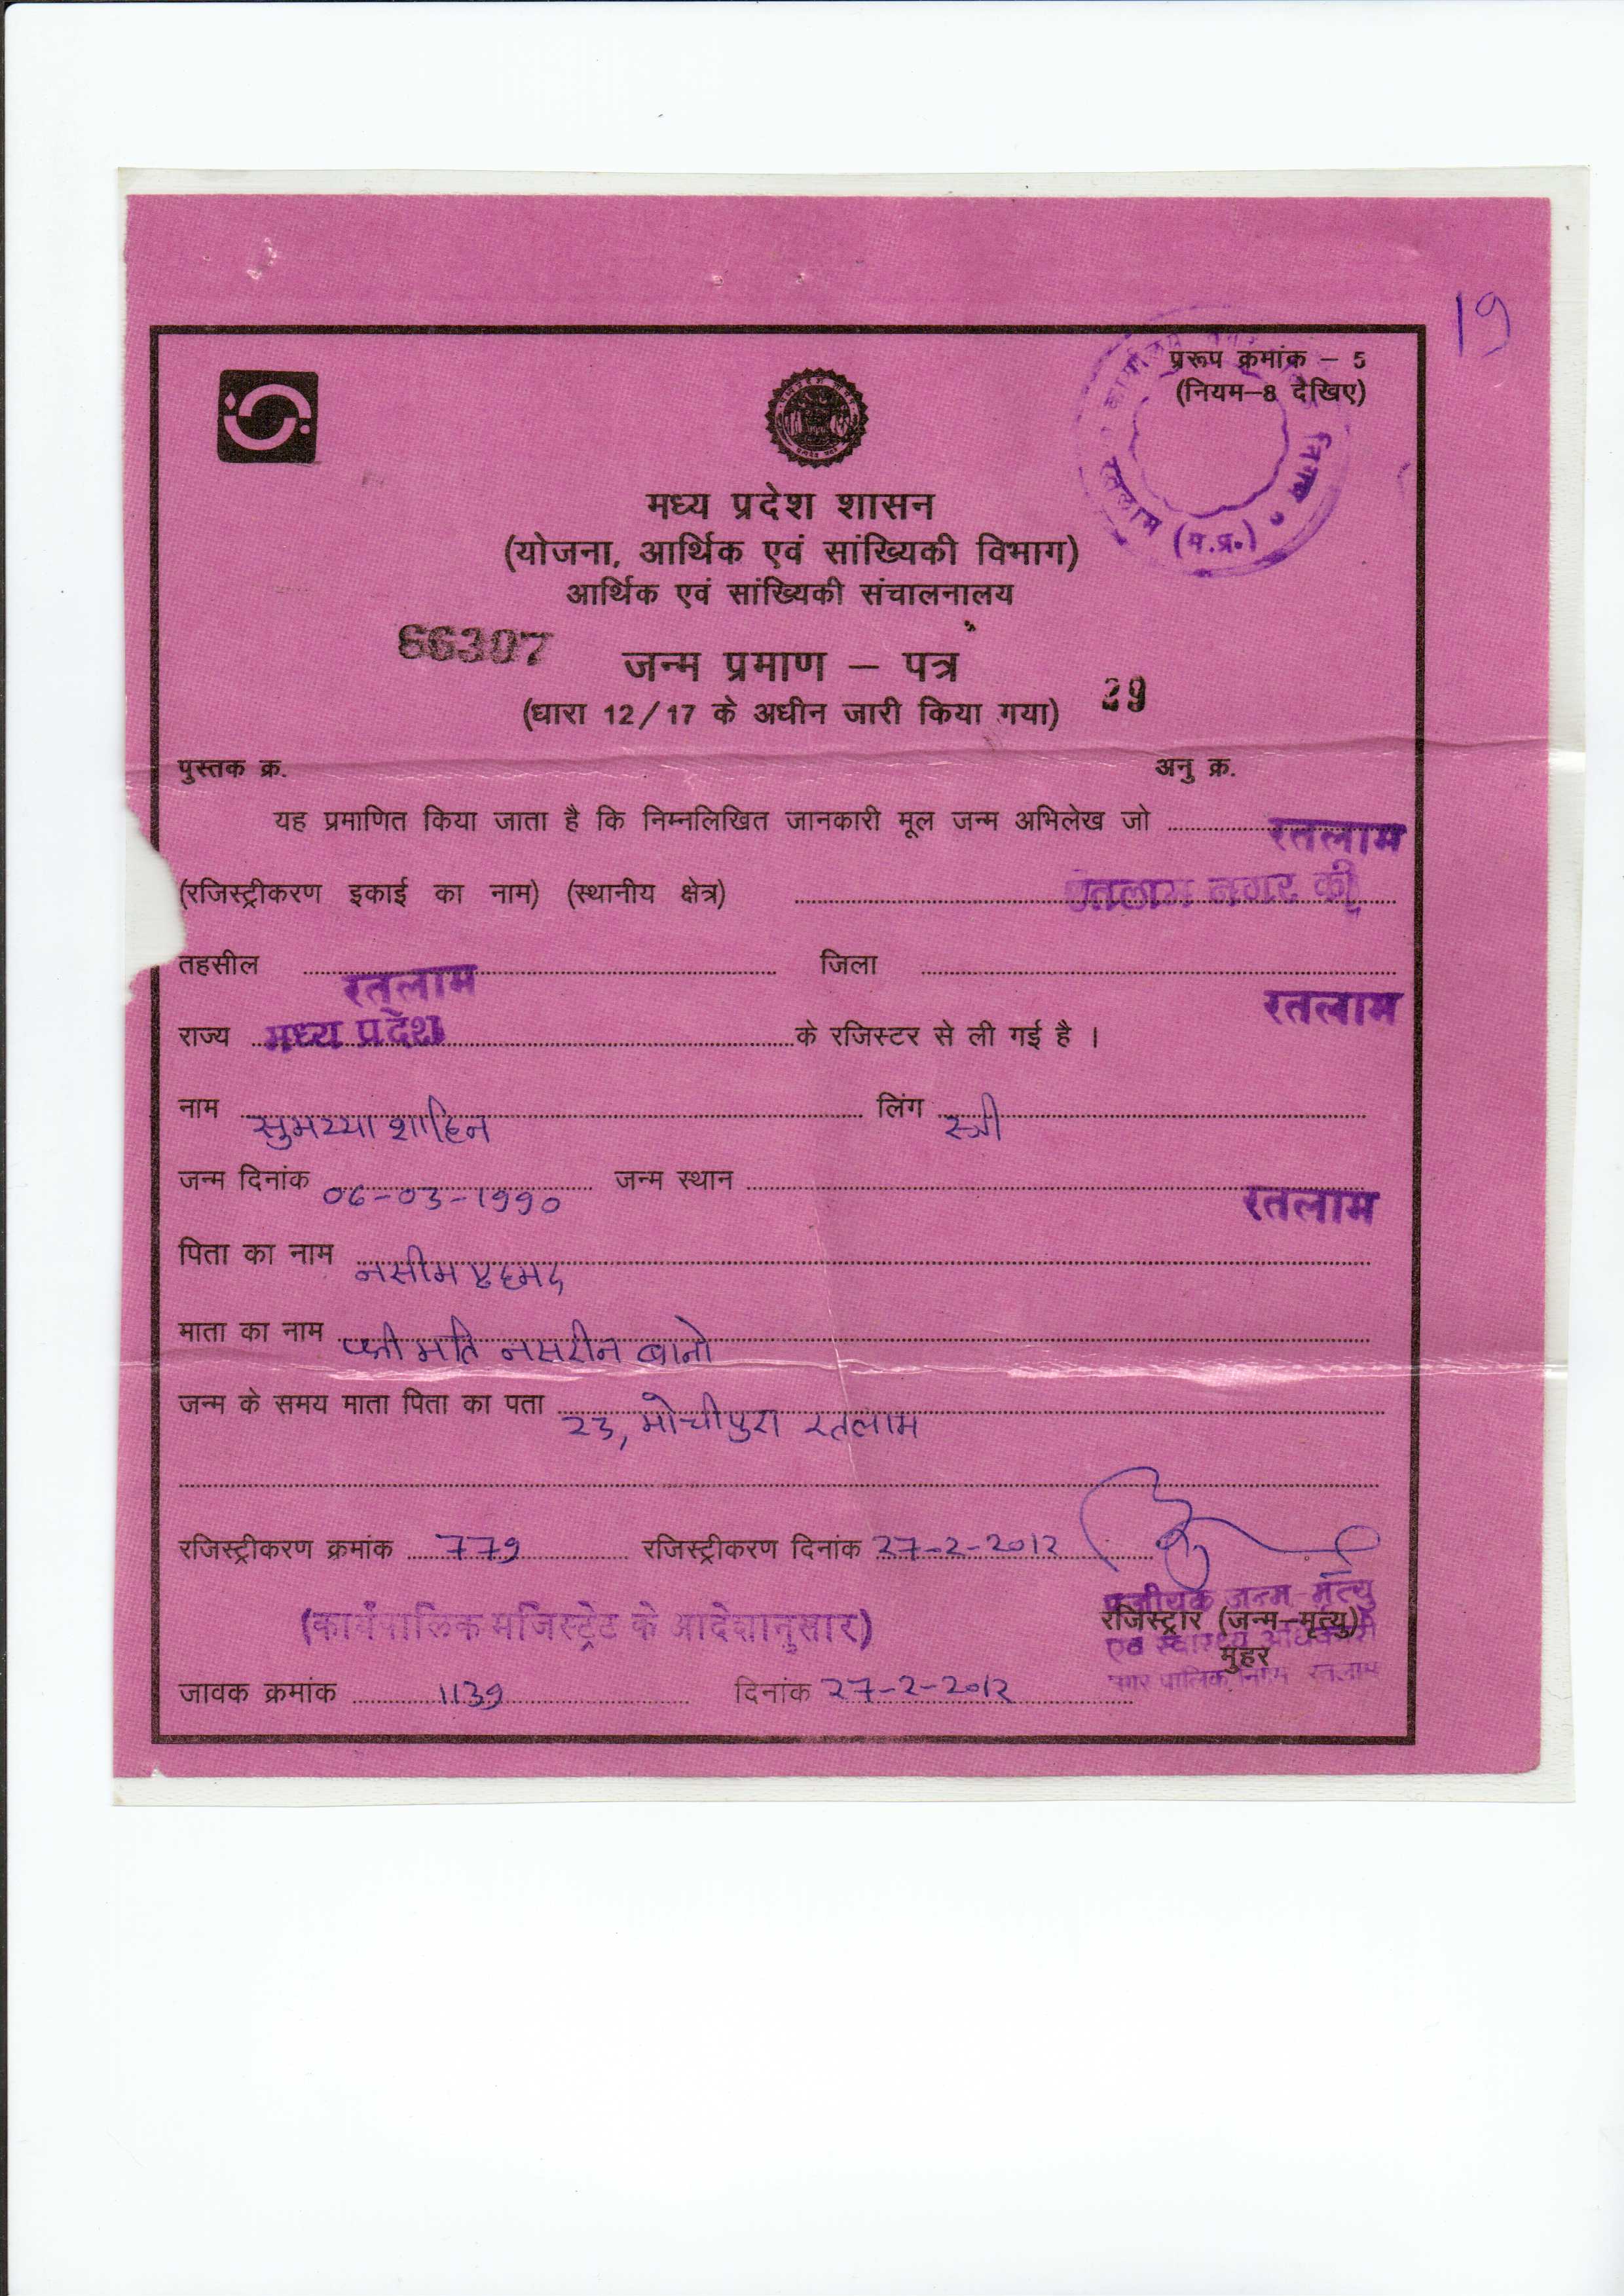 19
प्ररूप क्रमांक – 5
(नियम–8 देखिए)
रतलाम (म.प्र.)
मध्य प्रदेश शासन
(योजना, आर्थिक एवं सांख्यिकी विभाग)
आर्थिक एवं सांख्यिकी संचालनालय
66307
जन्म प्रमाण – पत्र
29
(धारा 12/17 के अधीन जारी किया गया)
पुस्तक क्र. अनु क्र.
यह प्रमाणित किया जाता है कि निम्नलिखित जानकारी मूल जन्म अभिलेख जो रतलाम
(रजिस्ट्रीकरण इकाई का नाम) (स्थानीय क्षेत्र) रतलाम नगर की
तहसील रतलाम जिला रतलाम
राज्य मध्य प्रदेश के रजिस्टर से ली गई है ।
नाम सुमय्या शाहिन लिंग स्त्री
जन्म दिनांक 06-03-1990 जन्म स्थान रतलाम
पिता का नाम नसीम एहमद
माता का नाम श्री मति नसरीन बानो
जन्म के समय माता पिता का पता 23, मोचीपुरा रतलाम
रजिस्ट्रीकरण क्रमांक 779 रजिस्ट्रीकरण दिनांक 27-2-2012
(कार्यपालिक मजिस्ट्रेट के आदेशानुसार)
पंजीयक जन्म-मृत्यु
रजिस्ट्रार (जन्म–मृत्यु)
एवं स्वास्थ्य अधिकारी
मुहर
नगर पालिक निगम रतलाम
जावक क्रमांक 1139 दिनांक 27-2-2012